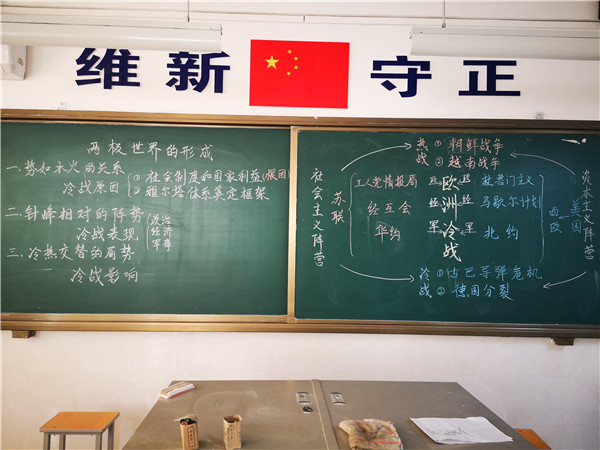 维新 守正
两极世界的形成
一.势如水火的关系
冷战原因 {①社会制度和国家利益(根因)
②雅尔塔体系奠定框架
二.针峰相对的阵势
冷战表现 {政治
经济
军事
三.冷热交替的局势
冷战影响
热战 ①朝鲜战争
②越南战争
社会主义阵营
苏联
工人党情报局
经互会
华约
政
经
军
欧洲冷战
政
经
军
杜鲁门主义
马歇尔计划
北约
西欧
美国
资本主义阵营
冷战 ①古巴导弹危机
②德国分裂